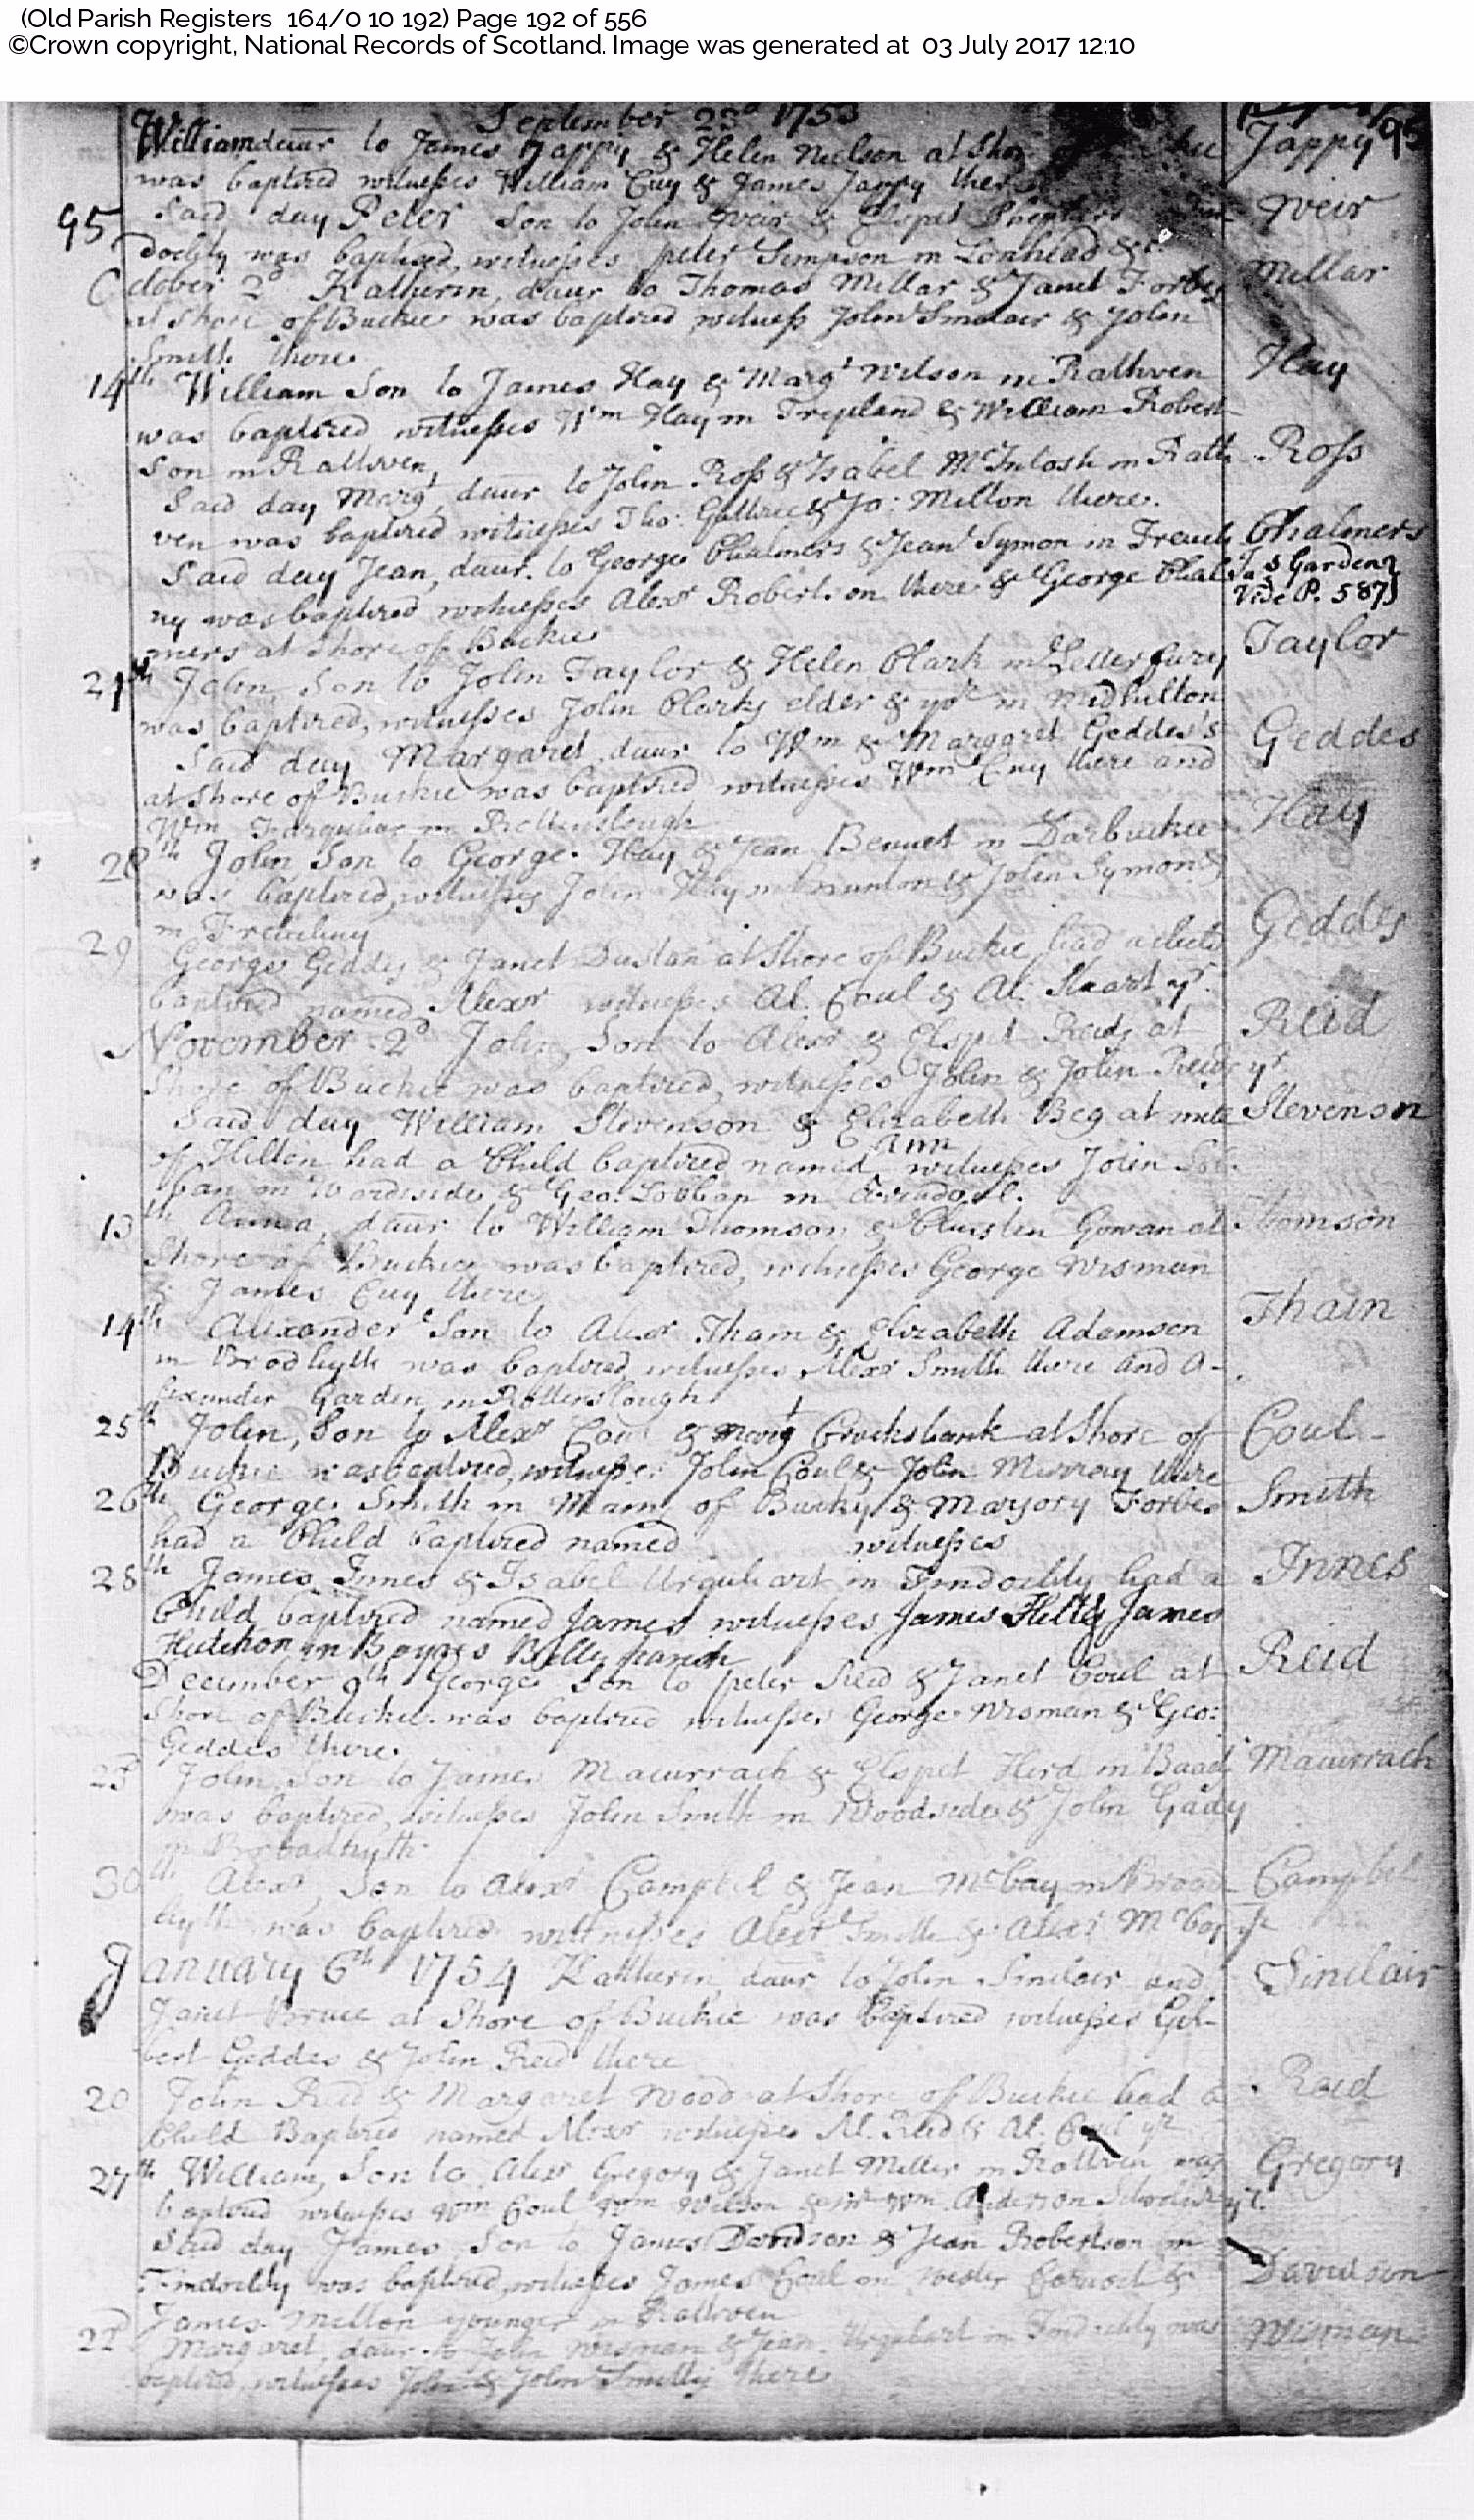 (Old Parish Registers 164/0 10 192) Page 192 of 556
©Crown copyright, National Records of Scotland. Image was generated at 03 July 2017 12:10
September 23d 1753
95
William daur to James Jappy & Helen Neilson at Shore Jappy
was baptized witnesses William Cuy & James Jappy there
Said day Peter Son to John Weir & Elspet Weir
95
dochty was baptized, witnesses peter Simpson in Lonhead &c.
October 2d Katherin, daur to Thomas Millar & Janet Forbes Millar
at Shore of Buckie was baptized witness John Sinclair & John
Smith there
14th William Son to James Hay & Margt Wilson in Rathven Hay
was baptized witnesses Wm Hay in Trepland & William Robert-
Son in Rathven,
Said day Margt, daur to John Ross & Isabel McIntosh in Rath Ross
ven was baptized witnesses Tho: Guthrie & Jo: Milton there.
Said day Jean, daur. to George Chalmers & Jean Symon in Freuch Chalmers
ny was baptized witnesses Alexr Robertson there & George Chal
Garden
Vide P. 587
mers at Shore of Buckie
21st John, Son to John Taylor & Helen Clark in Letterfury Taylor
was baptized, witnesses John Clarks elder & yor in Midbilton
Said day Margaret daur to Wm & Margaret Geddes's Geddes
at Shore of Buckie was baptized witnesses Wm Cuy there and
Wm Farquhar in Rottenslough
28th John, Son to George Hay & Jean Bennet in Darbuckie Hay
was baptized, witnesses John Hay in & John Symon
in Freuchny
29 George Geddes & Janet Duslan at Shore of Buckie had a child Geddes
baptized named Alexr witnesses Al. Coul & Al. Stuart yr.
November 2d John, Son to Alexr & Elspet Reids at Reid
Shore of Buckie was baptized, witnesses John & John Reids yr.
Said day William Stevenson & Elizabeth Beg at miln Stevenson
of Hilton had a Child baptized named Ann witnesses John Lob
ban in Wordside & Geo: Lobban in
13th Anna, daur to William Thomson & Christen Gowan at Thomson
Shore of Buckie was baptized, witnesses George Wisman
& James Cuy there
14th Alexander Son to Alexr Thain & Elizabeth Adamson Thain
in Brodhyth was baptized witnesses Alexr Smith there and A-
lexander Garden in Rottenslough
25th John, Son to Alexr Coul & Margt Cruckshank at Shore of Coul
Buckie was baptized, witnesses John Coul & John Murray there
26th George Smith in Mains of Bucky & Marjory Forbes Smith
had a Child baptized named witnesses
28th James Innes & Isabel Urquhart in Findochty had a Innes
Child baptized named James witnesses James James
Hutchon in Belly parish
December 9th George Son to peter Reid & Janet Coul at Reid
Shore of Buckie was baptized witnesses George Wisman & Geo:
Geddes there
23d John, Son to James Macurrach & Elspet Herd in Baads Macurrach
was baptized, witnesses John Smith in Woodside & John Gady
in Broadhyth
30th Alexr, Son to Alexr Campbel & Jean McCay in Broad Campbel
hyth was baptized witnesses Alexr Smith & Alexr McCay
January 6th 1754 Katherin daur to John Sinclair and Sinclair
Janet Bruce at Shore of Buckie was baptized witnesses Gil-
bert Geddes & John Reid there
20 John Reid & Margaret Wood at Shore of Buckie had a Reid
Child Baptized named Alexr witnesses Al. Reid & Al. Coul yr
27th William, Son to Alexr Gregory & Janet Miller in Rathven was Gregory
baptized witnesses Wm Coul Wm Wilson & Mr Wm Anderson yr.
Said day James Son to James Davidson & Jean Robertson in Davidson
Findochty was baptized, witnesses James Coul in &
James Milton younger in Rathven
22d Margaret, daur to John Wisman & Jean Urquhart in Findochty was Wisman
baptized, witnesses John & John Smiths there